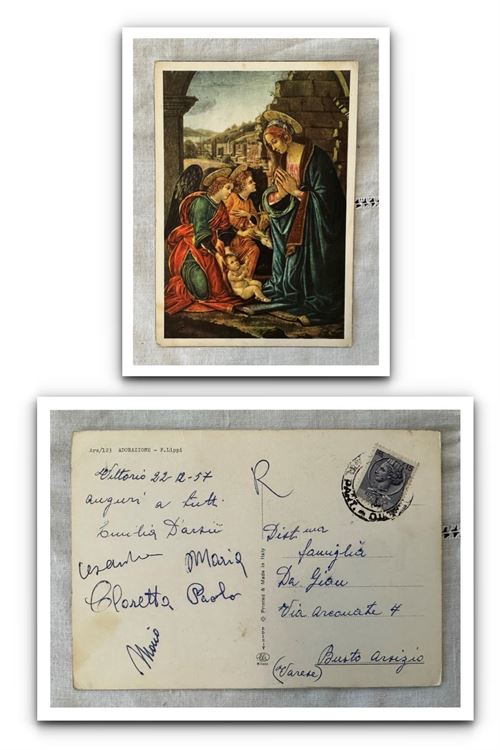 Ars/123 ADORAZIONE - F.Lippi
Vittorio 22-12-57
auguri a tutti
Emilia
Maria
Cloretta Paolo
Mario
R
Dist.ma
famiglia
Da Gian
Via Arconate 4
Busto Arsizio
(Varese)
Printed & Made in Italy